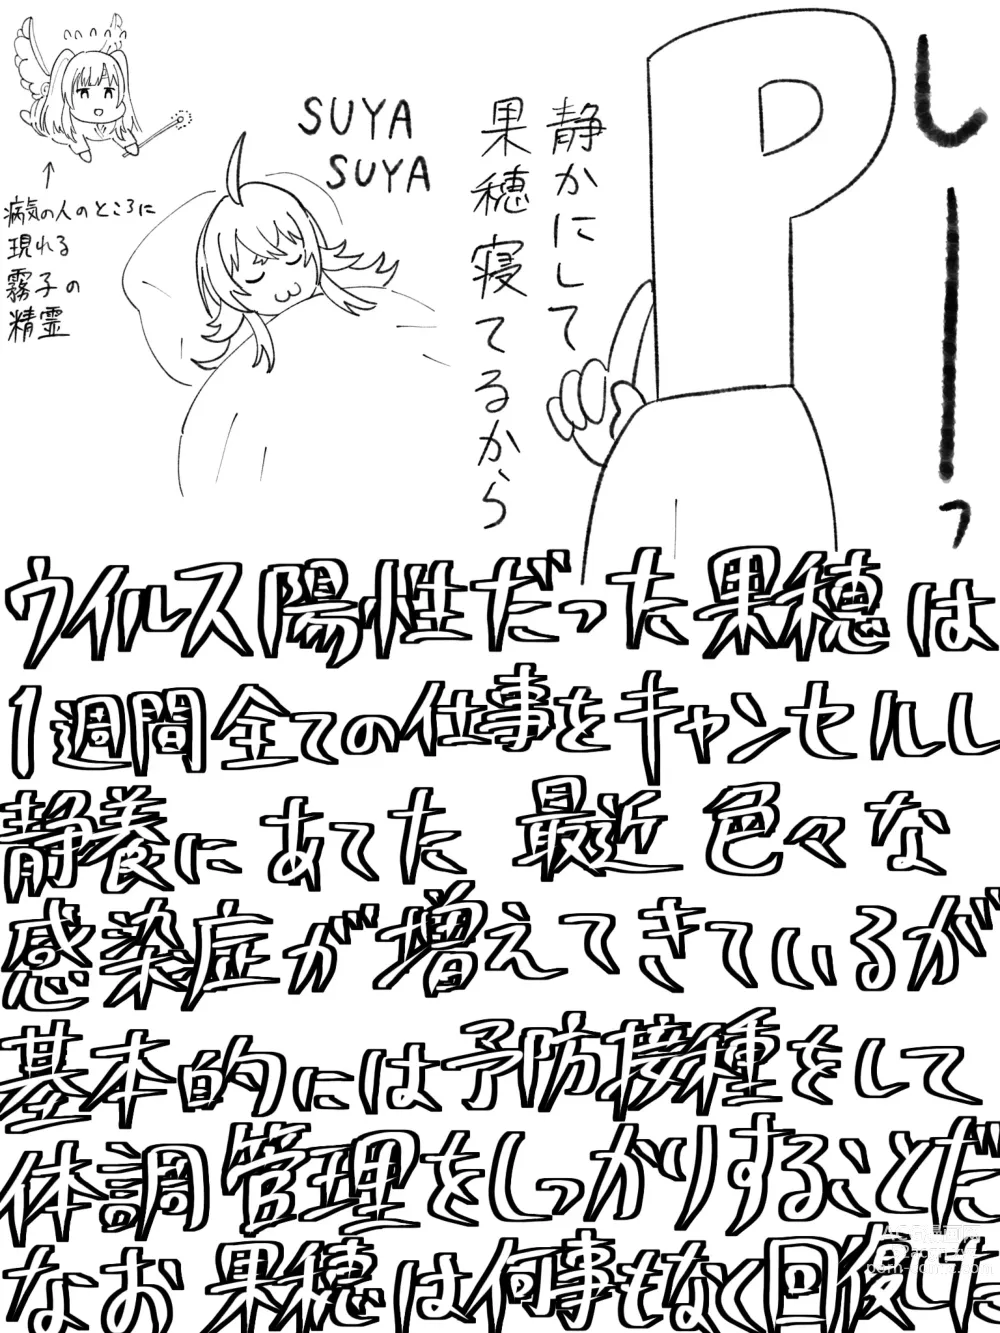 しーっ
静かにして
果穂寝てるから
SUYA
SUYA
病気の人のところに
現れる
霧子の
精霊
ウイルス陽性だった果穂は
1週間全ての仕事をキャンセルし
静養にあてた 最近 色々な
感染症が増えてきているが
基本的には予防接種をして
体調管理をしっかりすることだ
なお 果穂は何事もなく回復した
P